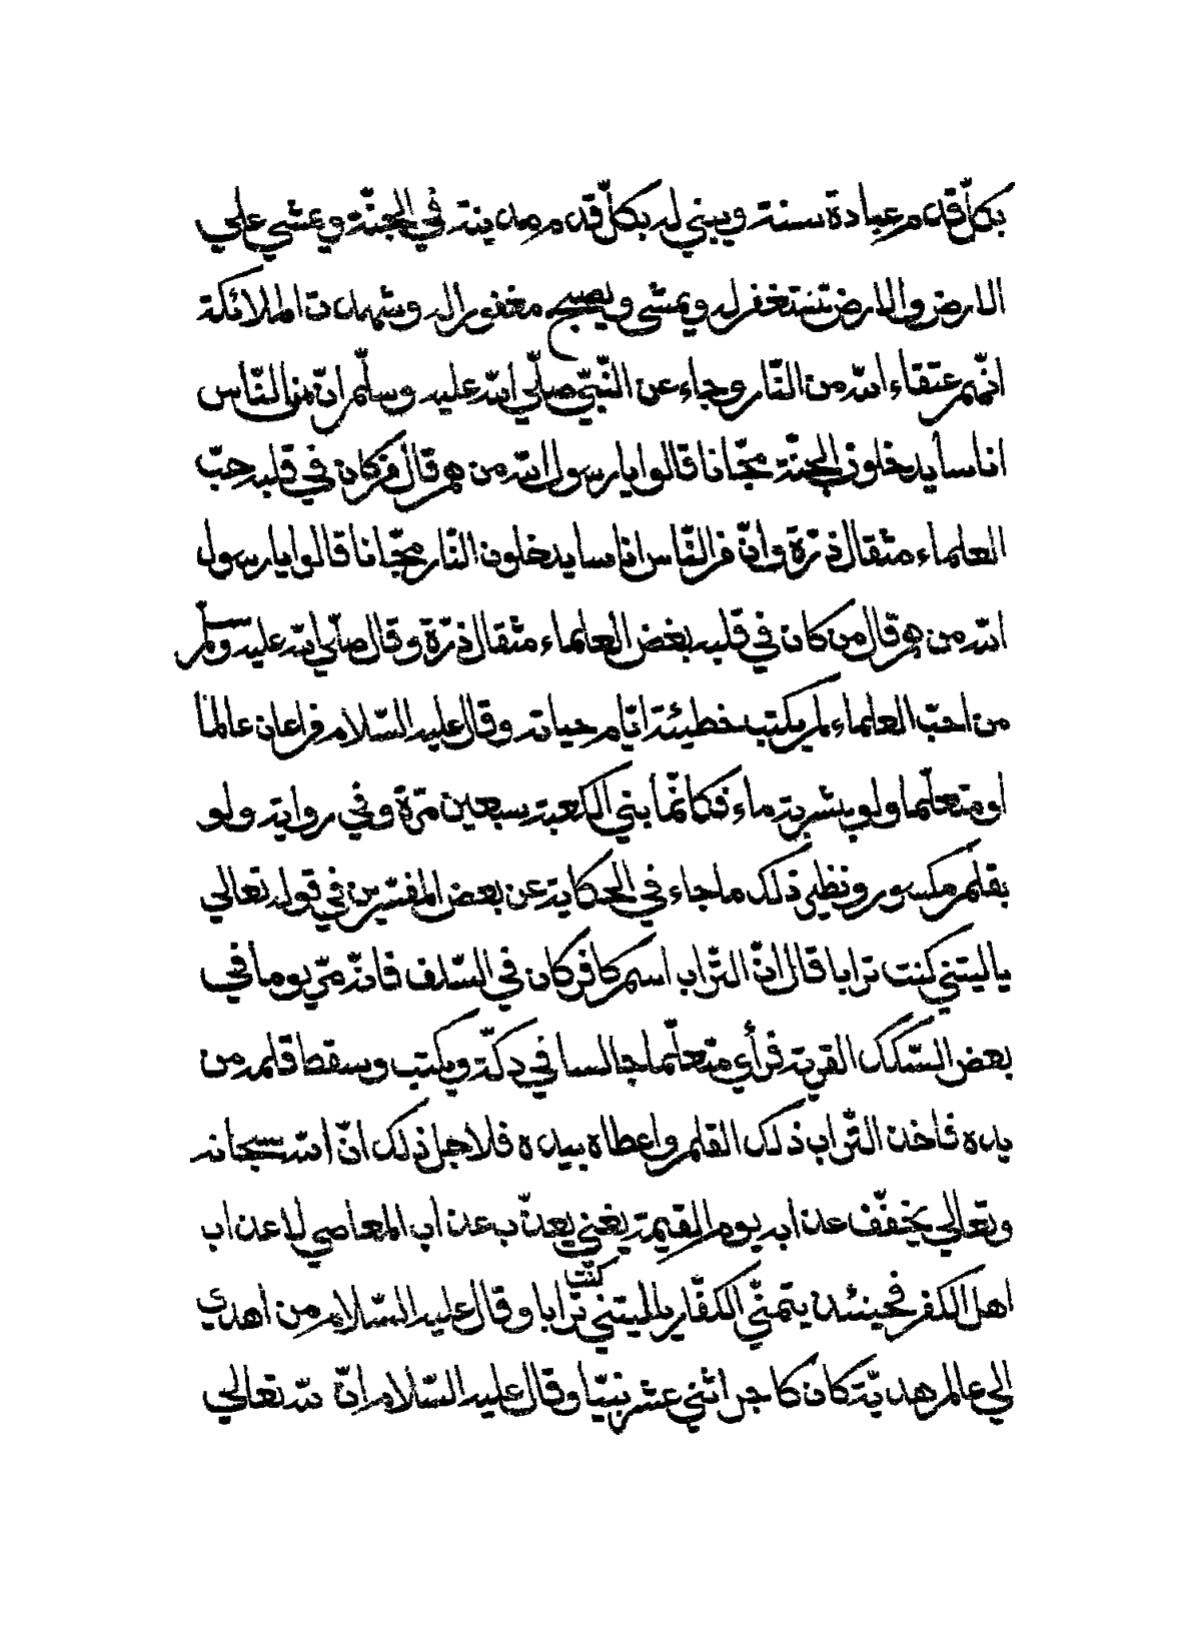 بكلّ قدم عبادة سنة ويبني له بكلّ قدم مدينة في الجنّة ويمشي علي
الارض والارض تستغفر له ويمشي ويصبح مغفورا له وشهدت الملائكة
انّهم عتقاء الله من النّار وجاء عن النّبيّ صلّي الله عليه وسلّم انّ من النّاس
اناسا يدخلون الجنّة مجّانا قالوا يا رسول الله من هم قال من كان في قلبه حبّ
العلماء مثقال ذرّة وانّ من النّاس اناسا يدخلون النّار مجّانا قالوا يا رسول
الله من هم قال من كان في قلبه بغض العلماء مثقال ذرّة وقال صلّي الله عليه وسلّم
من احبّ العلماء لم يكتب خطيئة ايّام حياته وقال عليه السّلام من اعان عالما
او متعلّما ولو بشربة ماء فكانّما بني الكعبة سبعين مرّة وفي رواية ولو
بقلم مكسور ونظير ذلك ما جاء في الحكاية عن بعض المفسّرين في قوله تعالي
يا ليتني كنت ترابا قال انّ التّراب اسم كافر كان في السّلف فانّه مرّ يوما في
بعض السّكك القرية فرأي متعلّما جالسا في دكّة ويكتب وسقط قلمه من
يده فاخذ التّراب ذلك القلم واعطاه بيده فلاجل ذلك انّ الله سبحانه
وتعالي يخفّف عذابه يوم القيمة يعني يعذّب عذاب المعاصي لا عذاب
اهل الكفر فحينئذ يتمنّي الكفّار يا ليتني كنت ترابا وقال عليه السّلام من اهدي
الي عالم هديّة كان كاجر اثني عشر نبيّا وقال عليه السّلام انّ لله تعالي